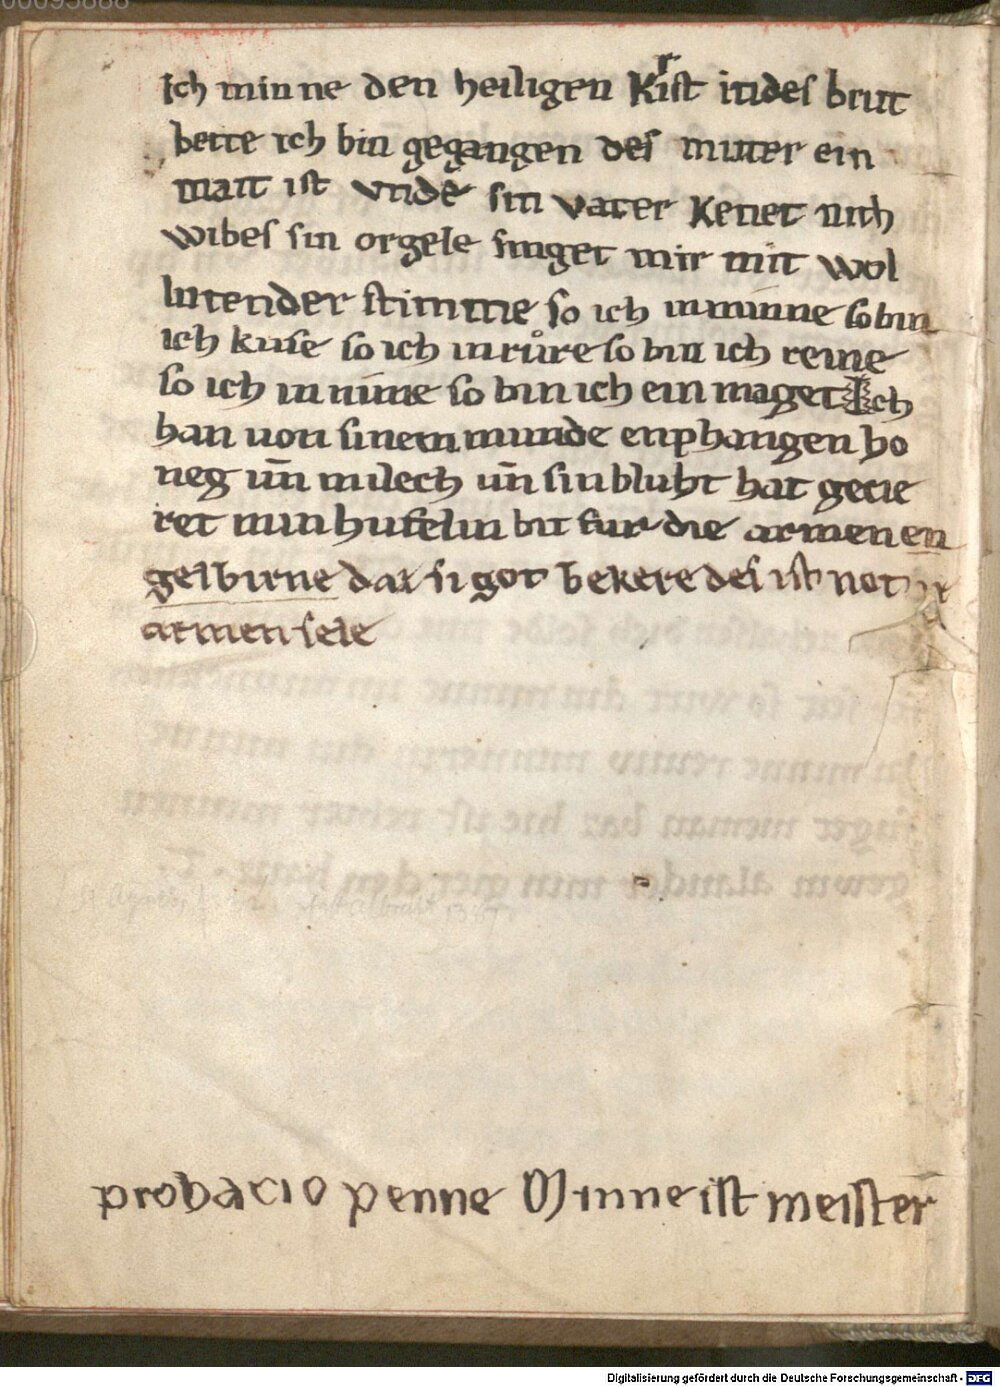 00095888
Ich minne den heiligen Krist indes brut
bette ich bin gegangen des muter ein
mait ist vnde sin vater Kenet nith
wibes sin orgele singet mir mit wol
lutender stimme so ich in minne so bin
ich kuse so ich in ruͦre so bin ich reine
so ich in nime so bin ich ein maget Ich
han uon sinem munde enphangen ho
neg un̄ milech un̄ sin bluht hat gezie
ret min hufelin bit fur die armen en
gelbirne daz si got bekere des ist not
armen sele
probacio penne Minne ist meister
Digitalisierung gefördert durch die Deutsche Forschungsgemeinschaft - DFG